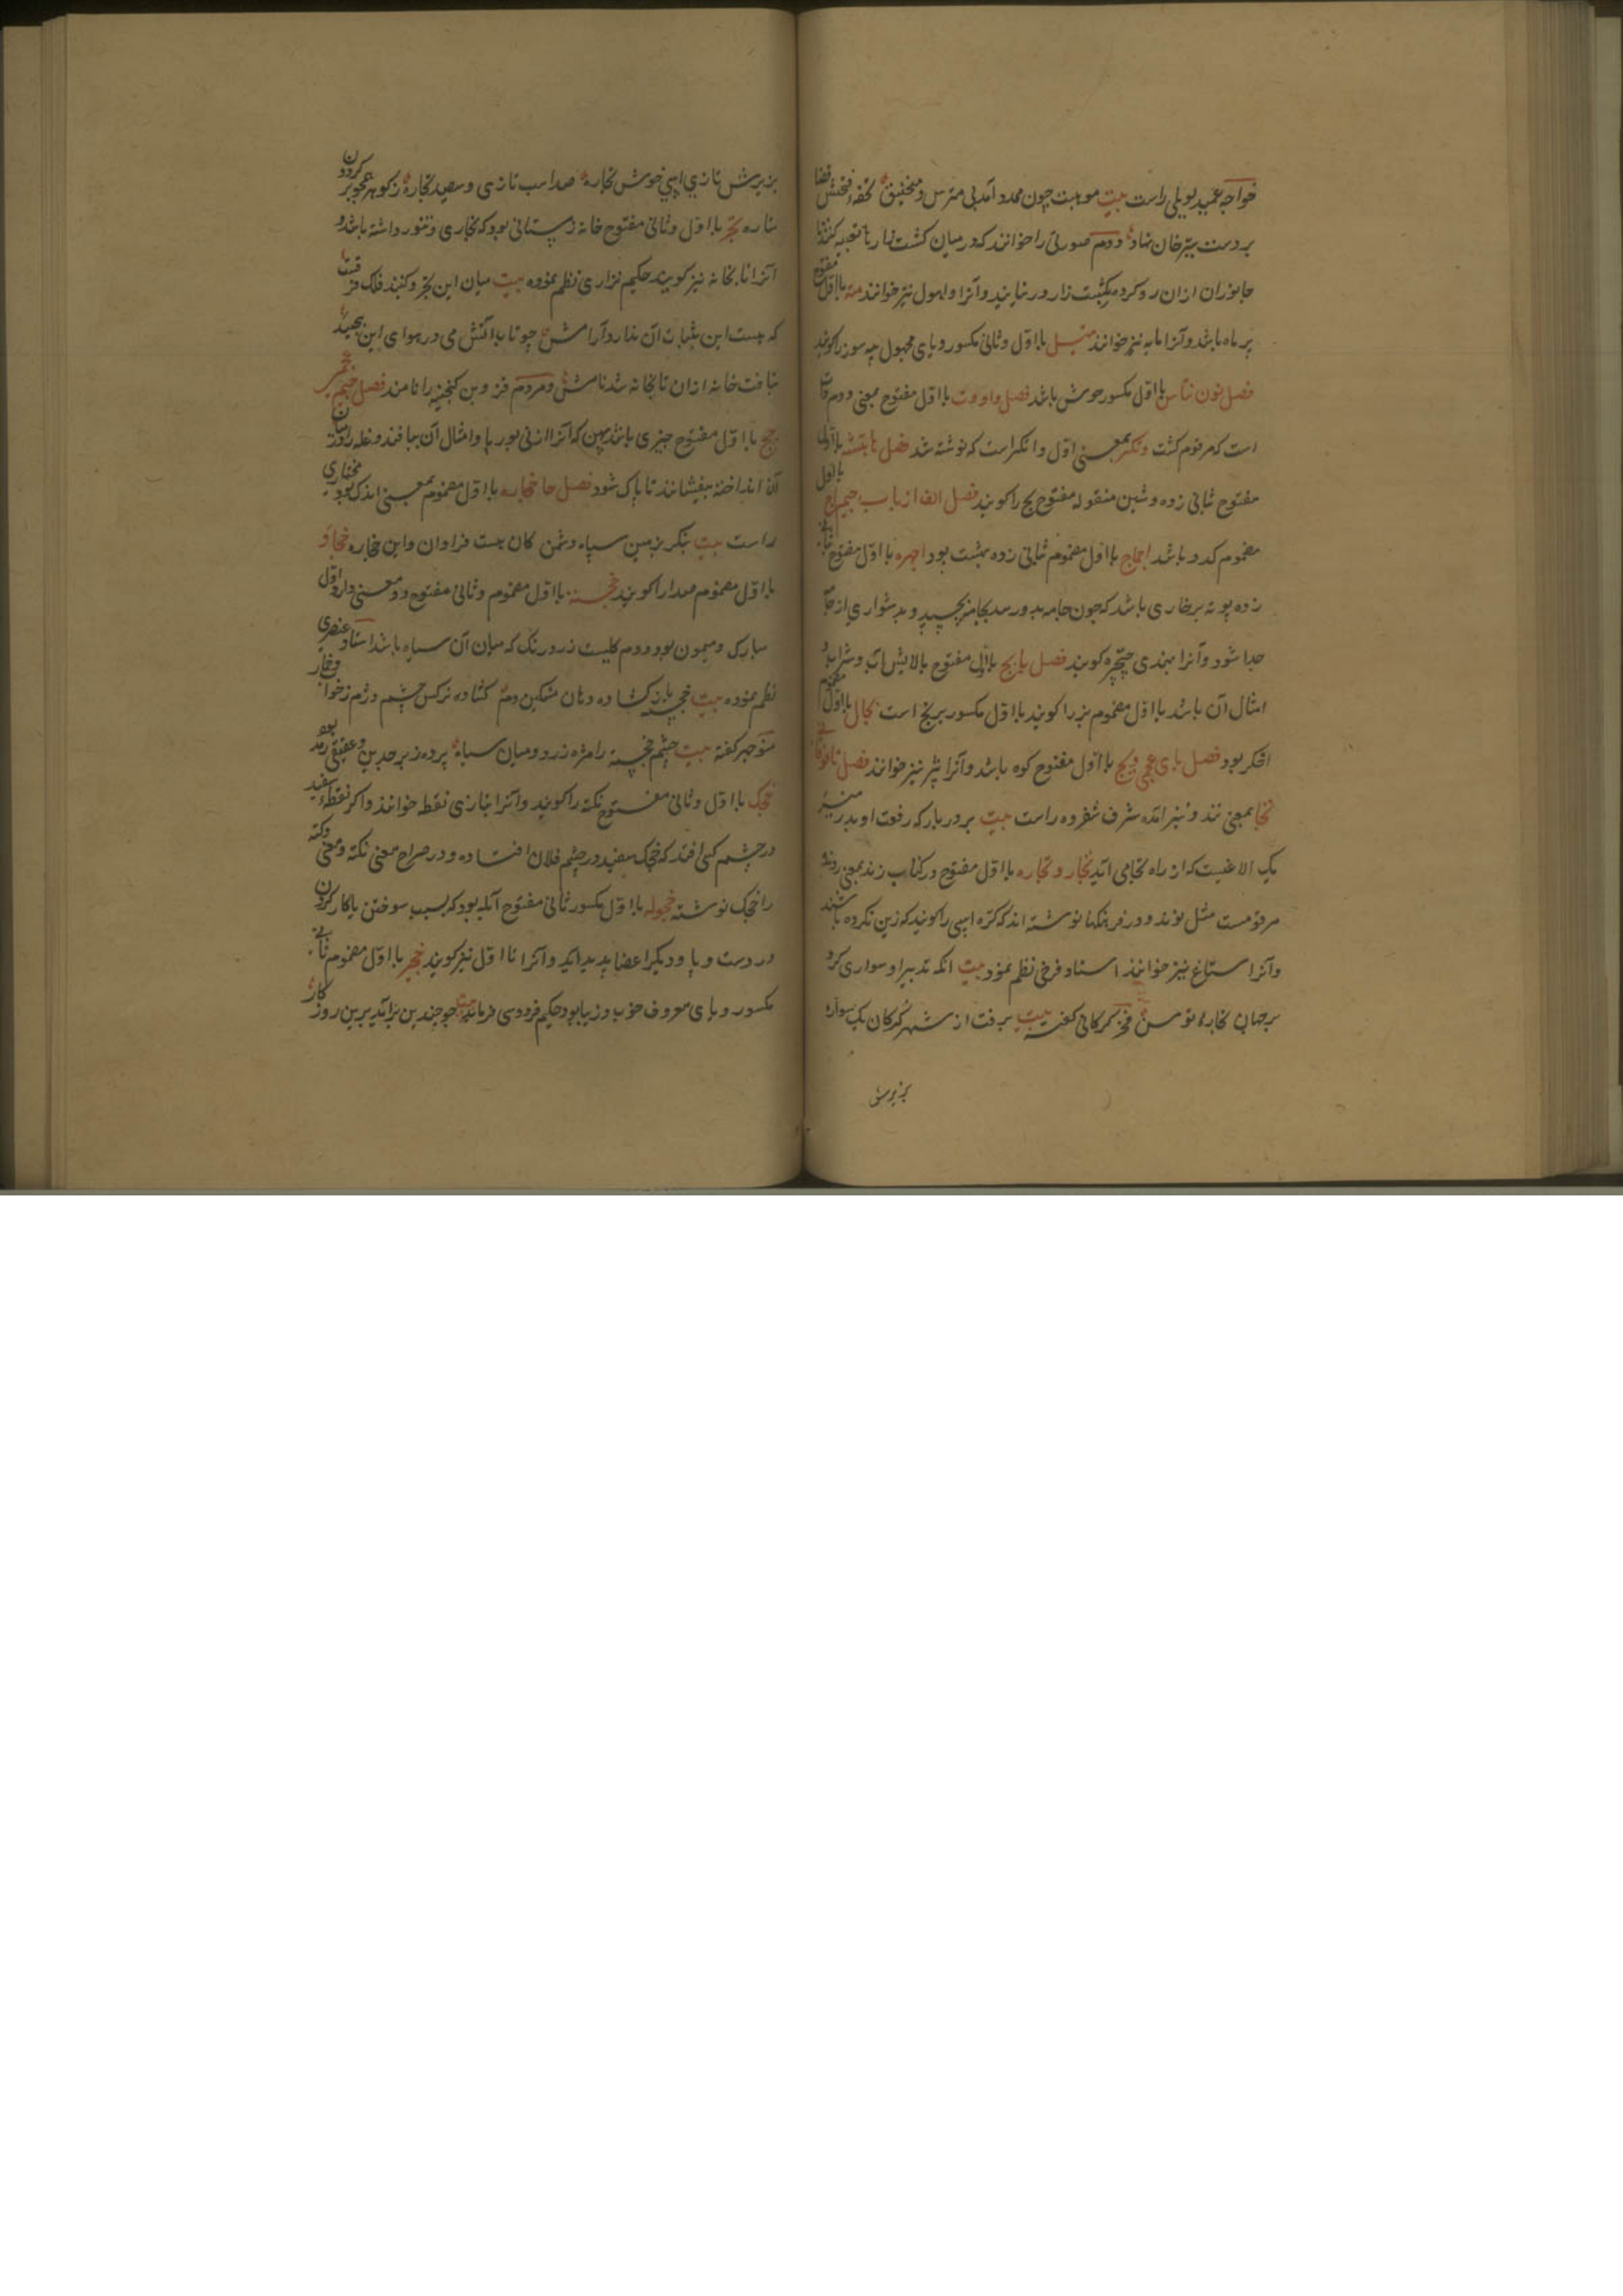 خواجه عمید لویلی راست بیت موهبت چون مدد آمد بی مترس و منجنیق کفه فتحش قضا
بر دست تیرخان نهاد دوم صورتی را خوانند که در میان کشت زار با تعبیه کنند تا
جانوران ازان رو کرد مکشت زار در نیایند و آنرا داهول نیز خوانند مته با اول مفتوح
پر ماه باشد و آنرا مابه نیز خوانند با اول و ثانی مکسور و یای مجهول پیه سوز را کویند
فصل نون نتاس با اول مکسور خوش باشد فصل واو وت با اول مفتوح بمعنی دوم تت
است که مرقوم کشت وتکر بمعنی اول وانکر است که نوشته شد فصل یا یتشه با اول
مفتوح ثانی زده و شین منقوله مفتوح یخ را کویند فصل الف از باب جیم اج با اول
مضموم کدو باشد اجماج با اول مضموم ثانی زده بهشت بود اجهره با اول مفتوح ثانی
زده بوته پرخاری باشد که چون جامه بدو رسد بجامه بچسپد و بدشواری از جا
جدا شود و آنرا بهندی چچره کویند فصل با بج با اول مفتوح بالایش آب و شراب و
امثال آن باشد با اول مضموم بز را کویند با اول مکسور برنج است بجال با اول مضموم
افکر بود فصل بای عجمی پج با اول مفتوح کوه باشد و آنرا پژ نیز خوانند فصل تا فوقانی
تجا بمعنی تند و تیز آمده شرف شفروه راست بیت بر در بار که رفعت او بدر منیر
یک الاغیست که از راه تجا می آید تجار و تجاره با اول مفتوح در کتاب زند بمعنی رونده
مرقومست مثل نوند و در فرهنکها نوشته اند که کره اسپی را کویند که زین نکرده باشند
و آنرا ستاغ نیز خوانند استاد فرخی نظم نموده بیت انکه تدبیر او سواری کرد
بر جهان تجارهٔ توسن فخر کرکانی کفته بیت برفت از شهر کرکان یک سواره
بزیرش
بزیرش تازی اسپی خوش تجاره صد اسب تازی و سیصد تجاره ز کوهر همچو بر کردون
ستاره تجر با اول و ثانی مفتوح خانه زمستانی بود که بخاری و تنور داشته باشد و
آنرا تابخانه نیز کویند حکیم نزاری نظم نموده بیت میان این تجر و کنبد فلک فرقست
که هست این بثبات آن ندارد آرامش چو تاب آتش می در هوای این پیچید
بتافت خانه ازان تابخانه شد نامش و مردم قزوین کنجینه را نامند فصل جیم
جج با اول مفتوح چیزی باشد پهن که آنرا از نی بوریا و امثال آن ببافند و غله را در میان
آن انداخته بیفشانند تا پاک شود فصل خا خجاره با اول مضموم بمعنی اندک بود مختاری
راست بیت بنکر بزمین سپاه دشمن کان هست فراوان و این خجاره خجاو
با اول مضموم صدا را کویند خجسته با اول مضموم و ثانی مفتوح دو معنی دارد اول
مبارک و میمون بود دوم کلیست زرد رنک که میان آن سیاه باشد استاد عنصری
نظم نموده بیت خجسته باز کشاده دهان مشکین دم کشاده نرکس چشم دژم ز خواب و خمار
منوچهر کفته بیت چشم خجسته را مژه زرد و میان سیاه پرده زبرجدین و عقیقی رمد بود
خجک با اول و ثانی مفتوح نکته را کویند و آنرا بتازی نقطه خوانند و اکر نقطه سفید
در چشم کسی افتد که خجک سفید در چشم فلان افتاده و در صراح معنی نکته و معنی وکته
را خجک نوشته خجوله با اول مکسور ثانی مفتوح آبله بود که بسبب سوختن یا کار کردن
در دست و پا و دیکر اعضا پدید اید و آنرا تا اول نیز کویند خجر با اول مضموم ثانی
مکسور و یای معروف خوب و زیبا بود حکیم فردوسی فرماید بیت چو چندین برآید برین روزکار